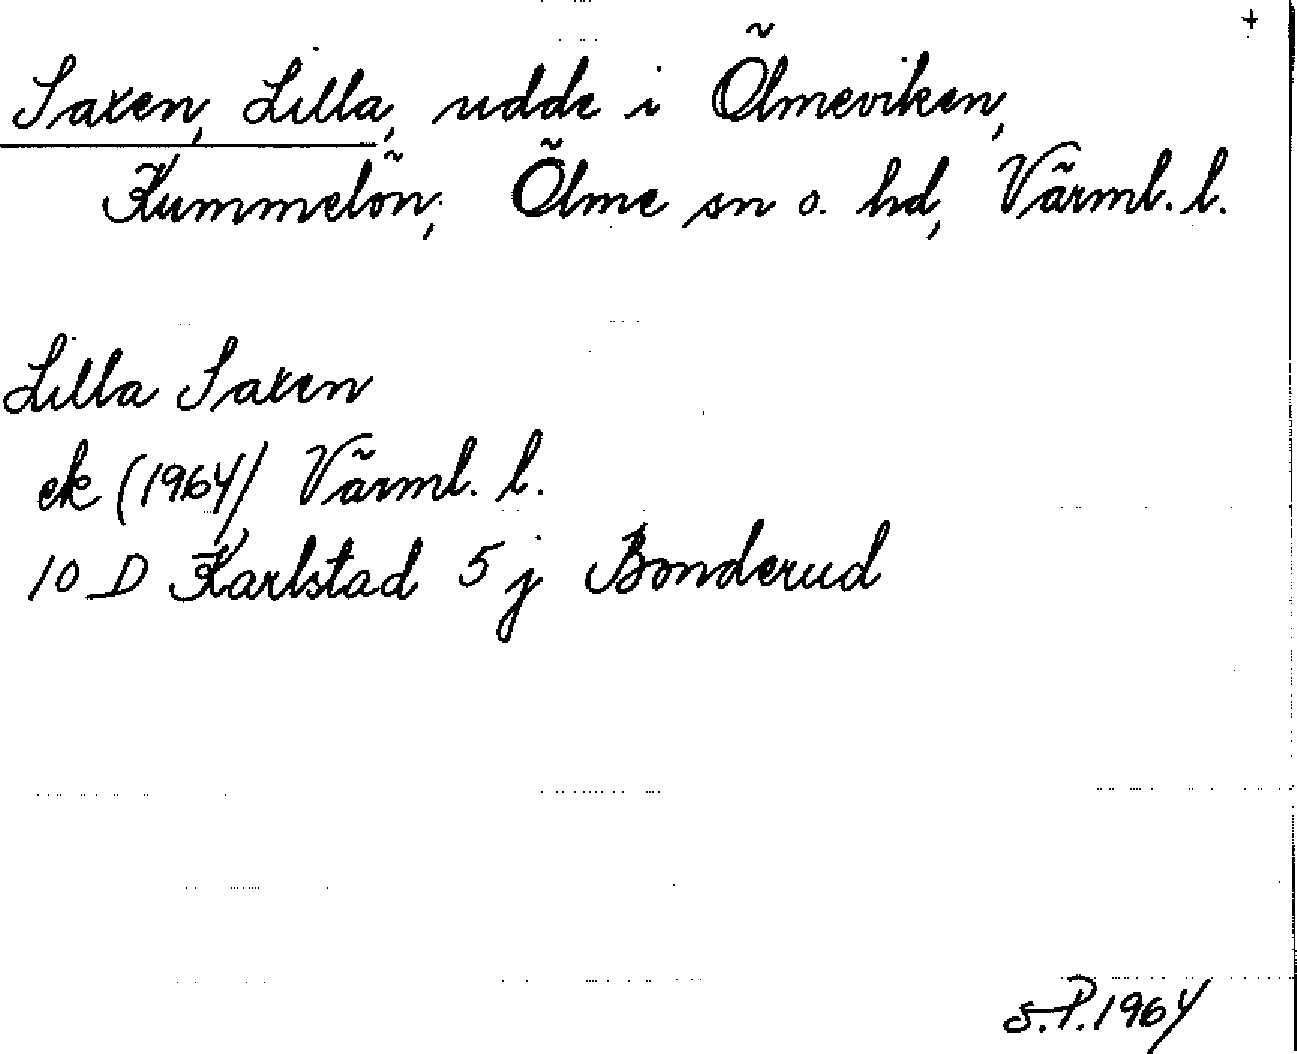 +
Saxen, Lilla, udde i Ölmeviken,
Kummelön, Ölme sn o. hd, Värml. l.
Lilla Saxen
ek (1964) Värml. l.
10 D Karlstad 5 j Bonderud
S.P. 1964